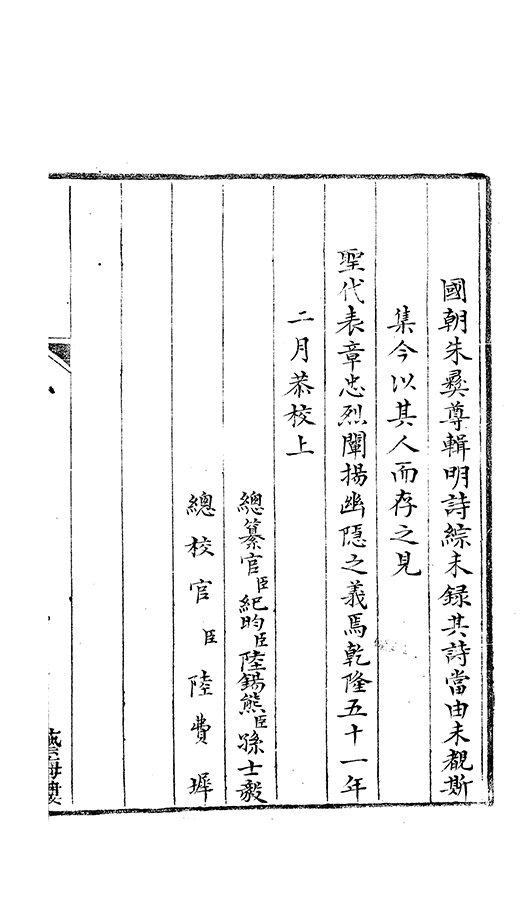 國朝朱彛尊輯明詩綜未録其詩當由未覩斯
集今以其人而存之見
聖代表章忠烈闡揚幽隠之義焉乾隆五十一年
二月恭校上
總纂官臣紀昀臣陸錫熊臣孫士毅
總校官臣陸費墀